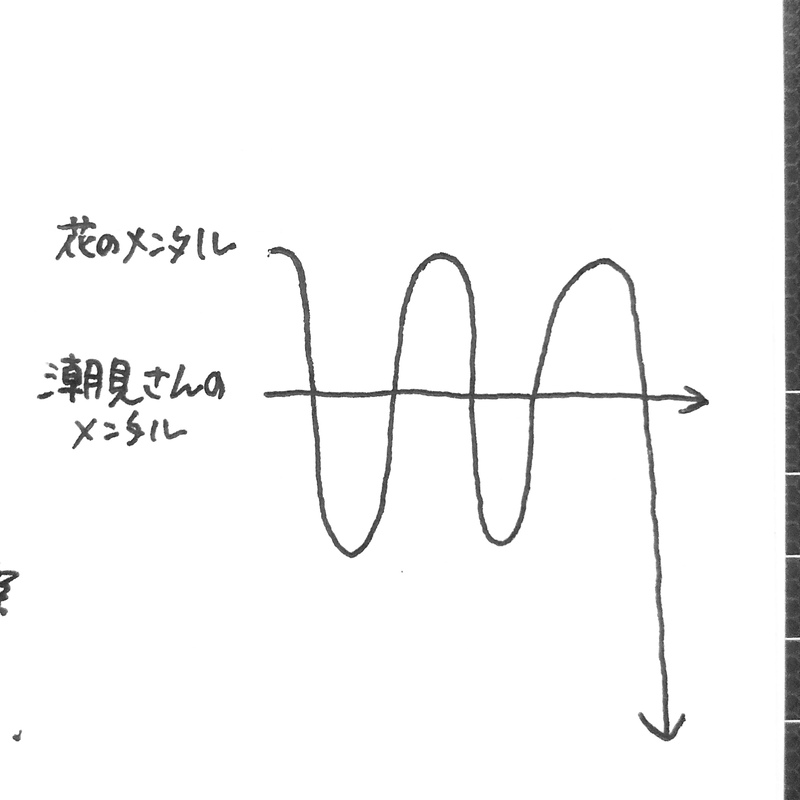 花のメンタル
潮見さんの
メンタル